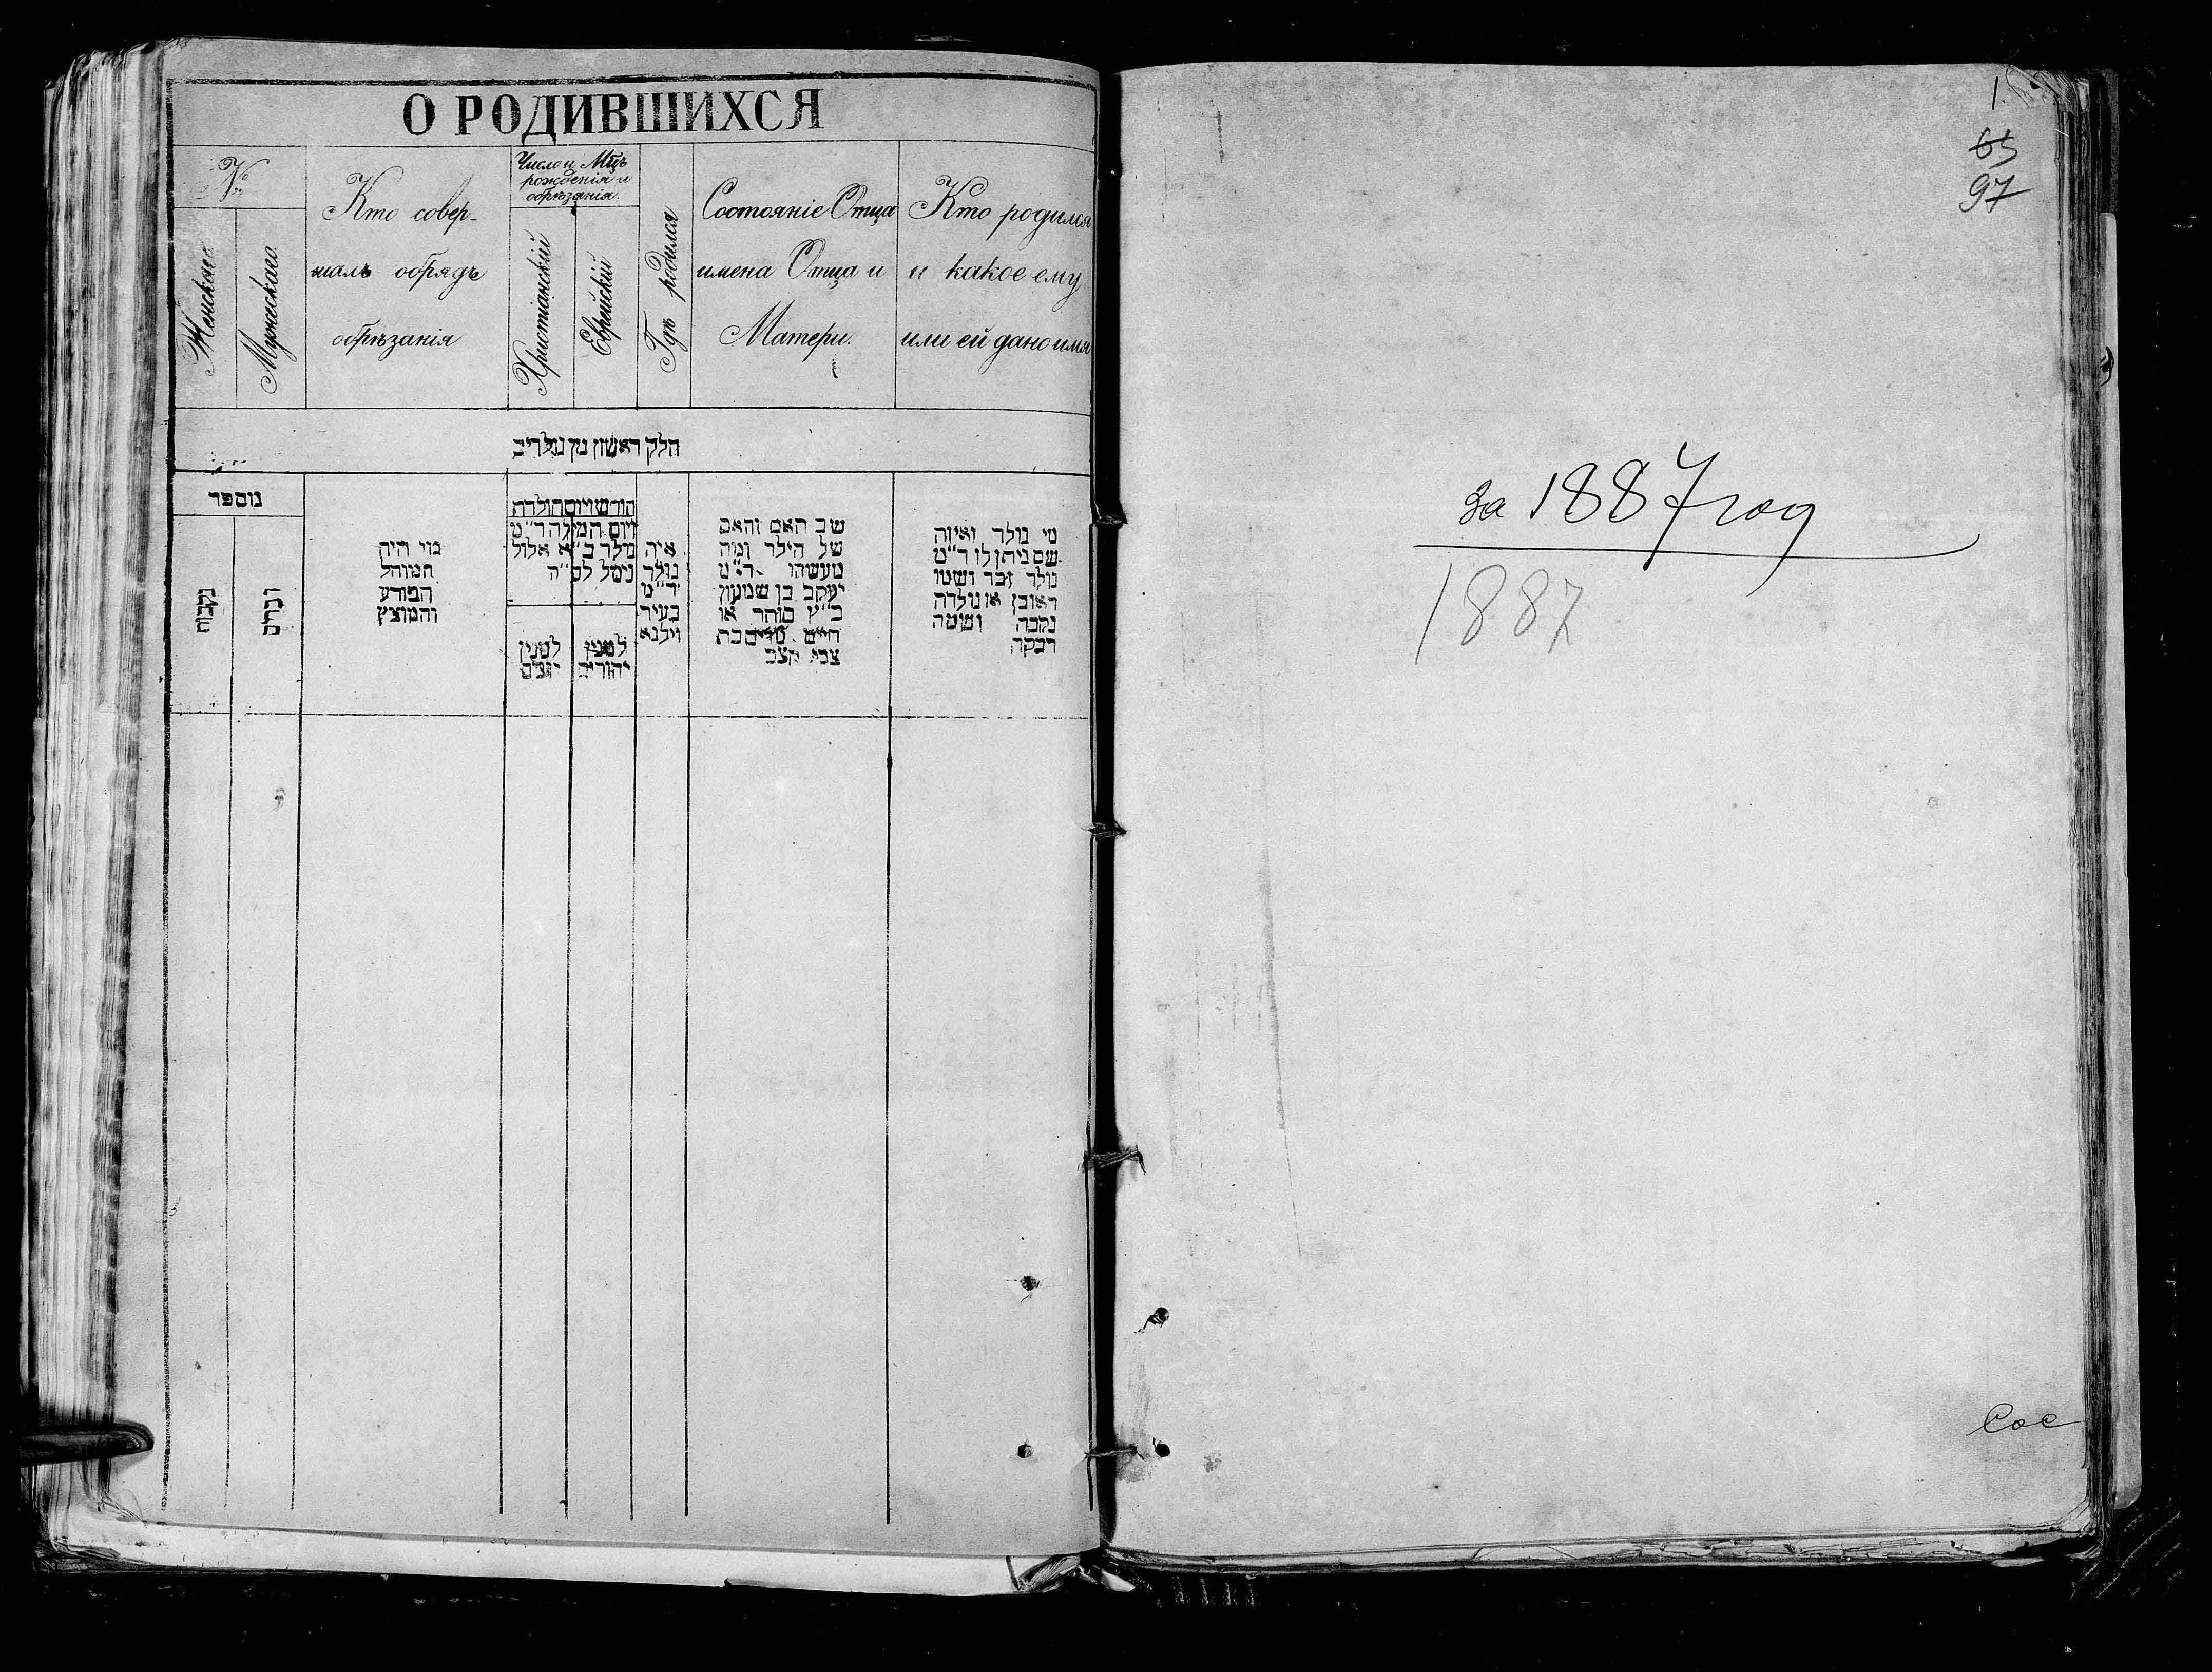 О РОДИВШИХСЯ
№
Женскаго.
Мужескаго.
Кто совер-
шалъ обрядъ
обрѣзанія
Число и Мцъ
рожденія и
обрѣзанія.
Христіанскій
Еврейскій
Гдѣ родился
Состояніе Отца
имена Отца и
Матери.
Кто родился
и какое ему
или ей дано имя
חלק ראשון מן נולדים
מספר
נקבות
זכרים
מי היה
המוהל
הפורע
והמוצץ
ויום המילה ד״מ
נולד כ״א אלול
נימל לס״ה
למנין
יהודים
למנין
איה
נולד
ד״מ
בעיר
ווילנא
שם האב והאם
של הילד ומה
מעשהו ד״מ
יעקב בן שמעון
כ״ץ סוחר או
צבי קצב
מי נולד ואיזה
שם ניתן לו ד״מ
נולד זכר ושמו
ראובן או נולדה
נקבה ושמה
רבקה
1.
65
97
за 1887 год
1887
Сое